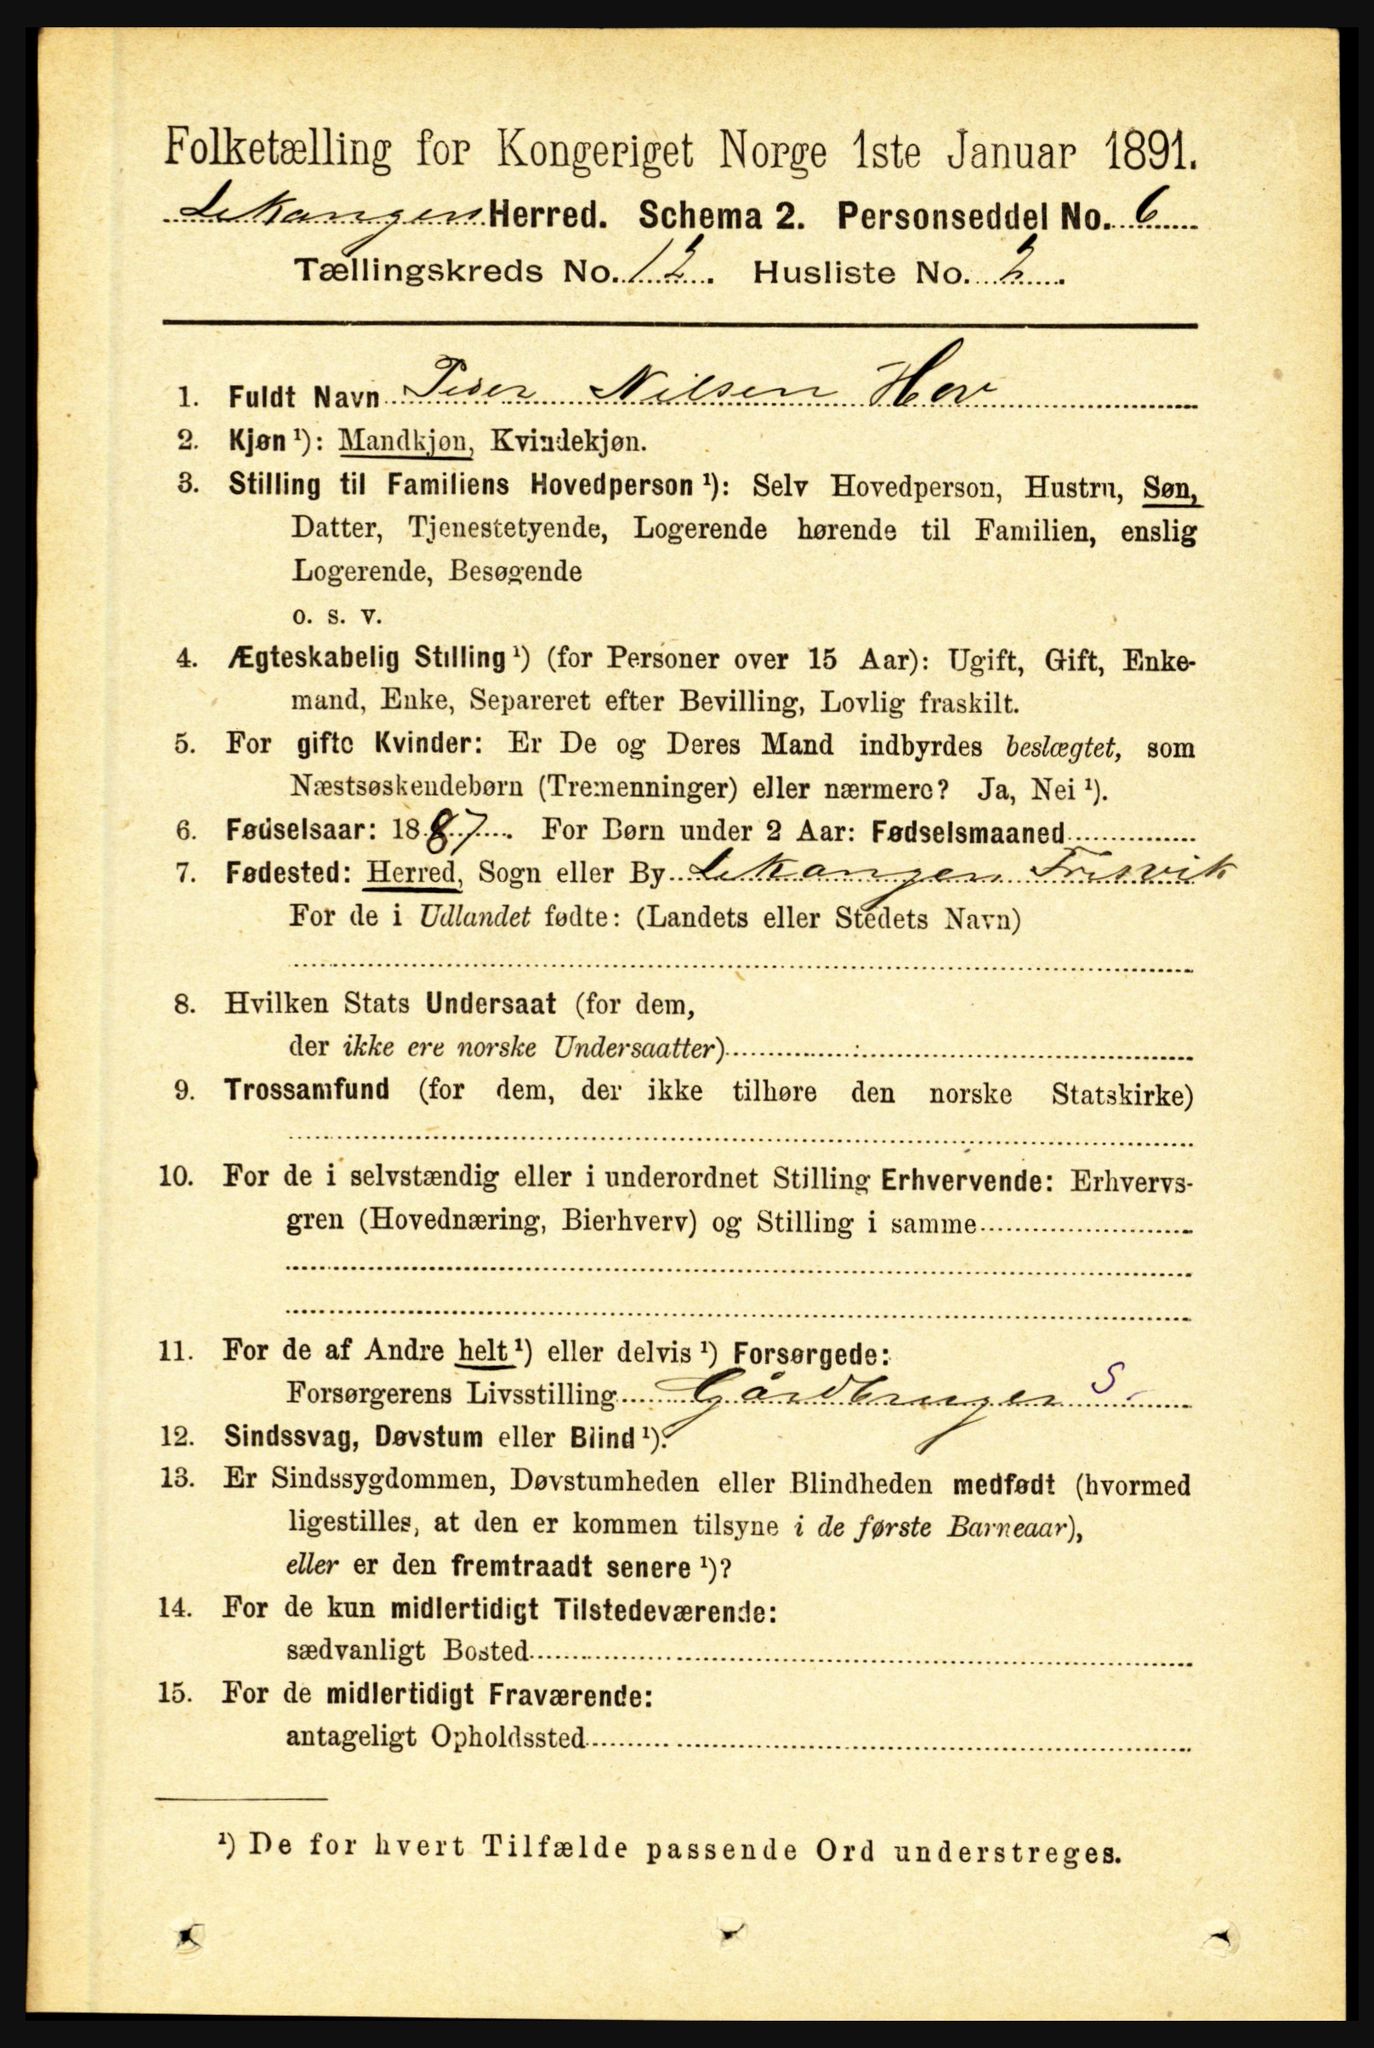 Folketælling for Kongeriget Norge 1ste Januar 1891.
Lekanger Herred. Schema 2. Personseddel No. 6
Tællingskreds No. 12. Husliste No. 2.
1. Fuldt Navn Peder Nilsen Hov
2. Kjøn¹): Mandkjøn, Kvindekjøn.
3. Stilling til Familiens Hovedperson¹): Selv Hovedperson, Hustru, Søn,
Datter, Tjenestetyende, Logerende hørende til Familien, enslig
Logerende, Besøgende
o. s. v.
4. Ægteskabelig Stilling¹) (for Personer over 15 Aar): Ugift, Gift, Enke-
mand, Enke, Separeret efter Bevilling, Lovlig fraskilt.
5. For gifte Kvinder: Er De og Deres Mand indbyrdes beslægtet, som
Næstsøskendebørn (Tremenninger) eller nærmere? Ja, Nei¹).
6. Fødselsaar: 1887. For Børn under 2 Aar: Fødselsmaaned
7. Fødested: Herred, Sogn eller By Lekanger
For de i Udlandet fødte: (Landets eller Stedets Navn)
8. Hvilken Stats Undersaat (for dem,
der ikke ere norske Undersaatter)
9. Trossamfund (for dem, der ikke tilhøre den norske Statskirke)
10. For de i selvstændig eller i underordnet Stilling Erhvervende: Erhvervs-
gren (Hovednæring, Bierhverv) og Stilling i samme
11. For de af Andre helt¹) eller delvis¹) Forsørgede:
Forsørgerens Livsstilling Gårdbruger S.
12. Sindssvag, Døvstum eller Blind¹).
13. Er Sindssygdommen, Døvstumheden eller Blindheden medfødt (hvormed
ligestilles, at den er kommen tilsyne i de første Barneaar),
eller er den fremtraadt senere¹)?
14. For de kun midlertidigt Tilstedeværende:
sædvanligt Bosted
15. For de midlertidigt Fraværende:
antageligt Opholdssted
¹) De for hvert Tilfælde passende Ord understreges.